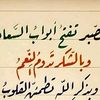 صبر تفتح أبواب السعا
وبالشكر تدوم النعم
وبذكر الله تطمئن القلوب